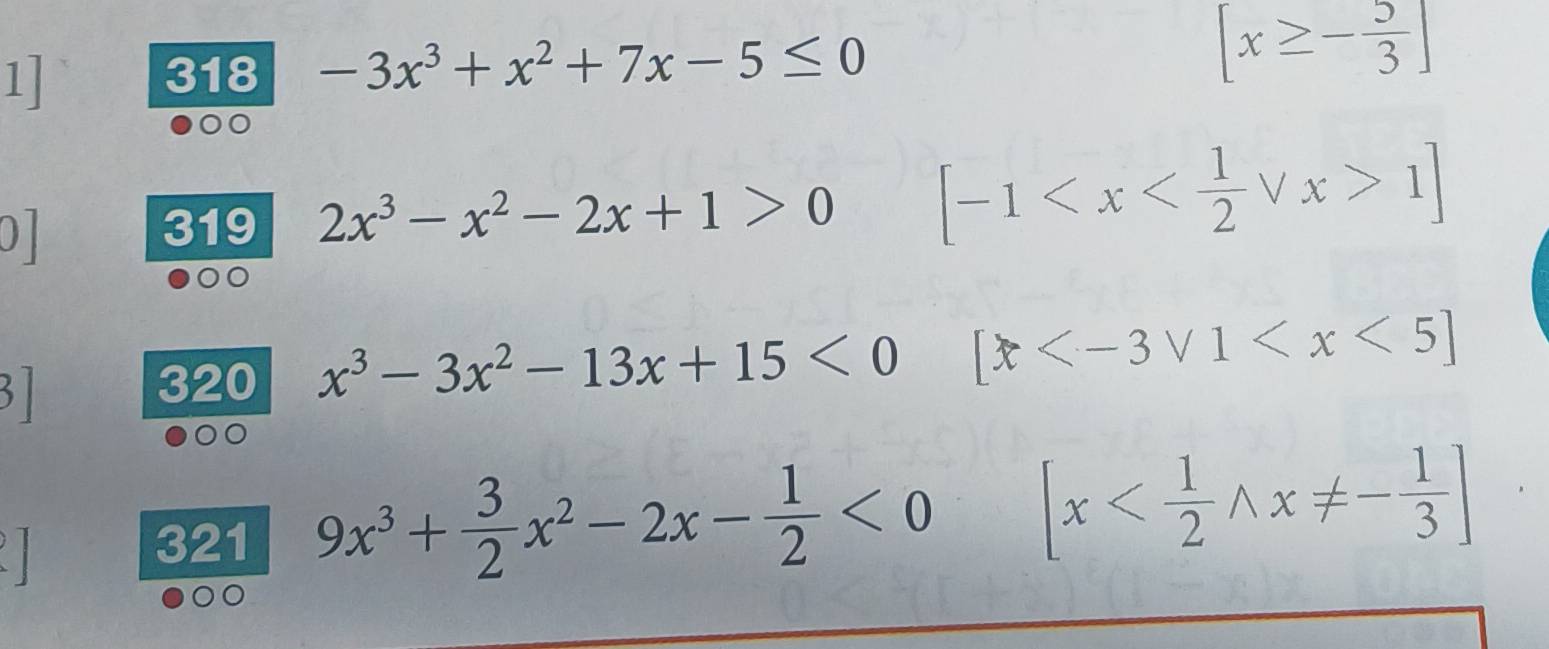 1] 318 −3x³ + x² + 7x − 5 ≤ 0 [x ≥ −5/3]
0] 319 2x³ − x² − 2x + 1 > 0 [−1 < x < 1/2 ∨ x > 1]
3] 320 x³ − 3x² − 13x + 15 < 0 [x < −3 ∨ 1 < x < 5]
] 321 9x³ + 3/2 x² − 2x − 1/2 < 0 [x < 1/2 ∧ x ≠ −1/3]